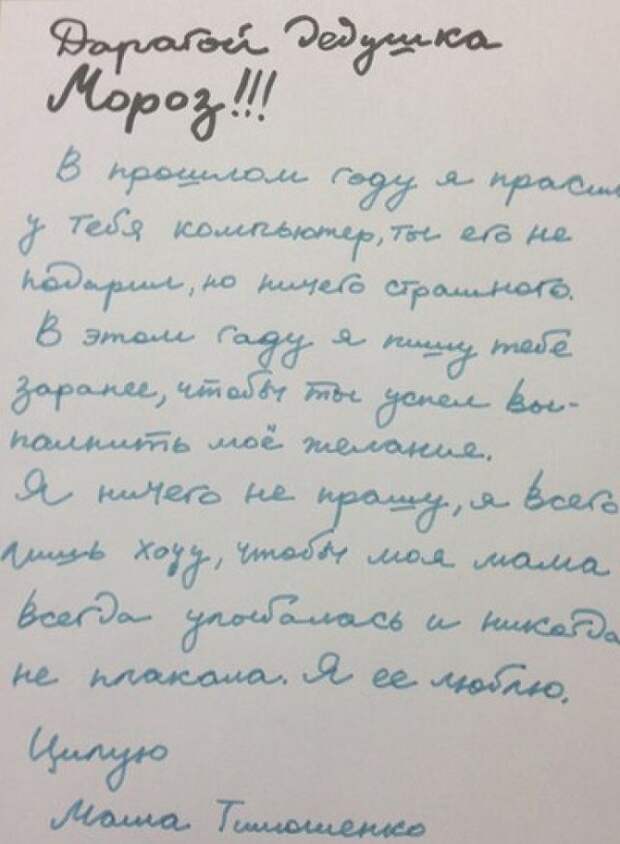 Дарагой Дедушка
Мороз!!!
В прошлом году я прасил
у тебя компьютер, ты его не
подарил, но ничего страшного.
В этом гаду я пишу тебе
заранее, чтобы ты успел вы-
палнить моё желание.
Я ничего не прашу, я всего
лишь хочу, чтобы моя мама
всегда улыбалась и никагда
не плакала. Я ее люблю.
Цилую
Маша Тимошенко